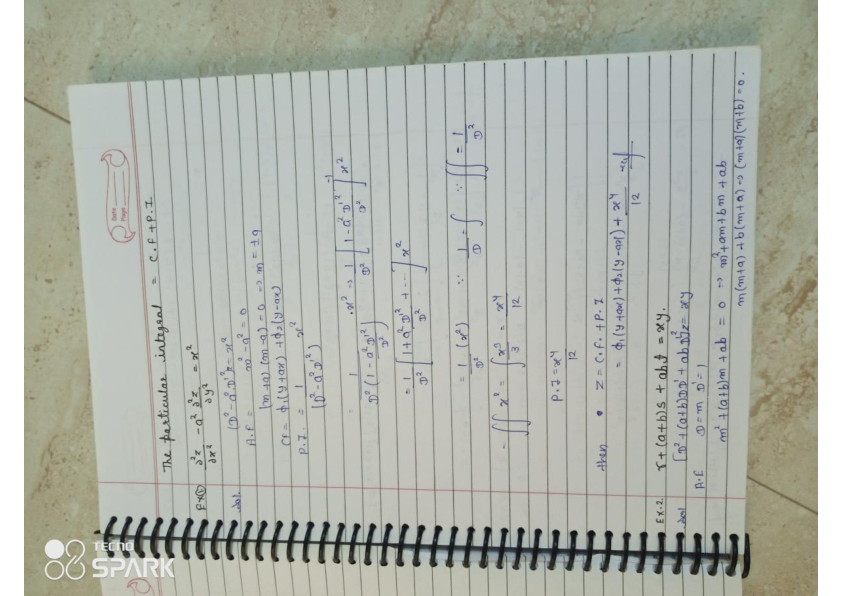 Date
Page
The particular integral = C.F + P.I
Ex① ∂²z/∂x² - a² ∂²z/∂y² = x²
Sol. (D² - a²D'²)z = x²
A.E = m² - a² = 0
(m+a)(m-a) = 0 ⇒ m = ±a
CF = ϕ₁(y+ax) + ϕ₂(y-ax)
P.I. = 1/(D² - a²D'²) x²
= 1/D²(1 - a²D'²/D²) · x² ⇒ 1/D² [1 - a²D'²/D²]⁻¹ x²
= 1/D² [1 + a²D'²/D² + ---] x²
= 1/D² (x²) ∵ 1/D = ∫ ∵ ∫∫ = 1/D²
= ∫∫ x² = ∫ x³/3 = x⁴/12
P.I = x⁴/12
then • Z = C.F. + P.I
= ϕ₁(y+ax) + ϕ₂(y-ax) + x⁴/12
Ex.2. r + (a+b)s + abt = xy.
Sol [D² + (a+b)DD' + abD'²]z = xy
A.E D = m D' = 1
m² + (a+b)m + ab = 0 ⇒ m² + am + bm + ab
m(m+a) + b(m+a) ⇒ (m+a)(m+b) = 0.
TECNO
SPARK